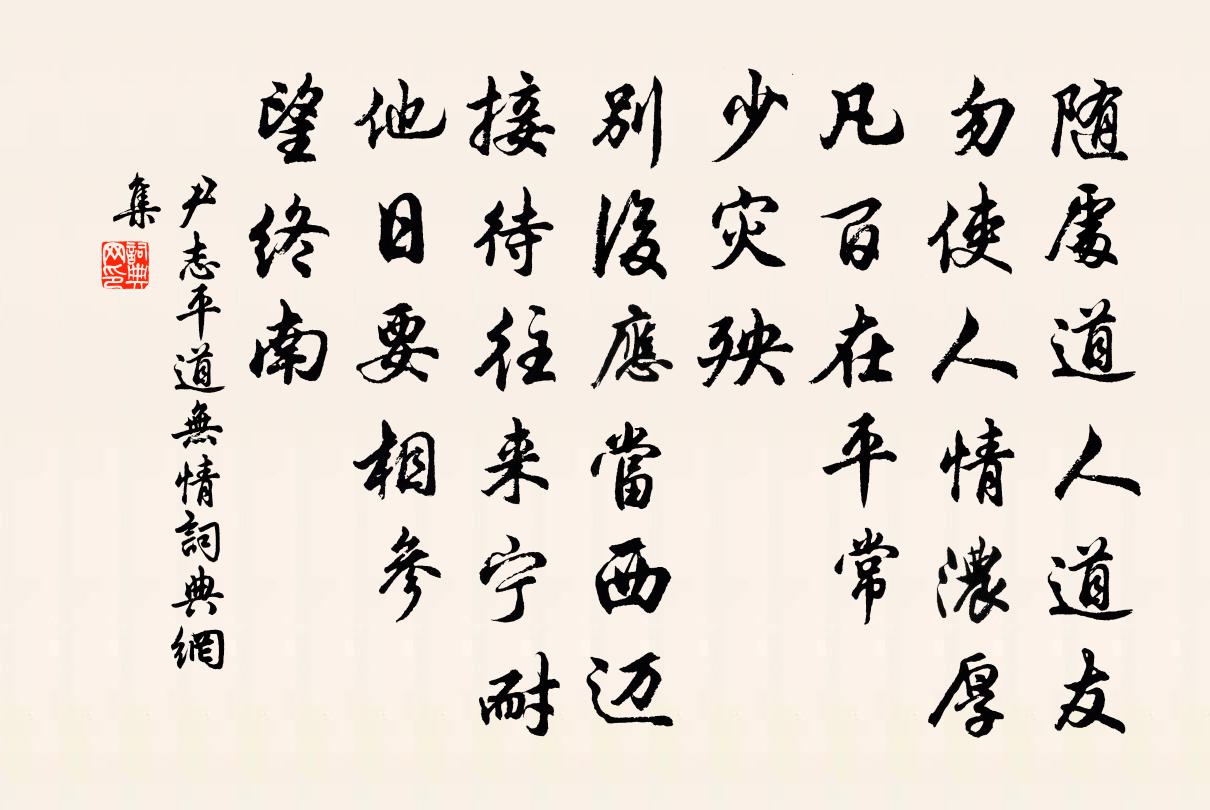 随處道人道友
勿使人情濃厚
凡百在平常
少灾殃
別後應當西迈
接待往来宁耐
他日要相參
望終南
尹志平道無情詞典網
集
詞典网印